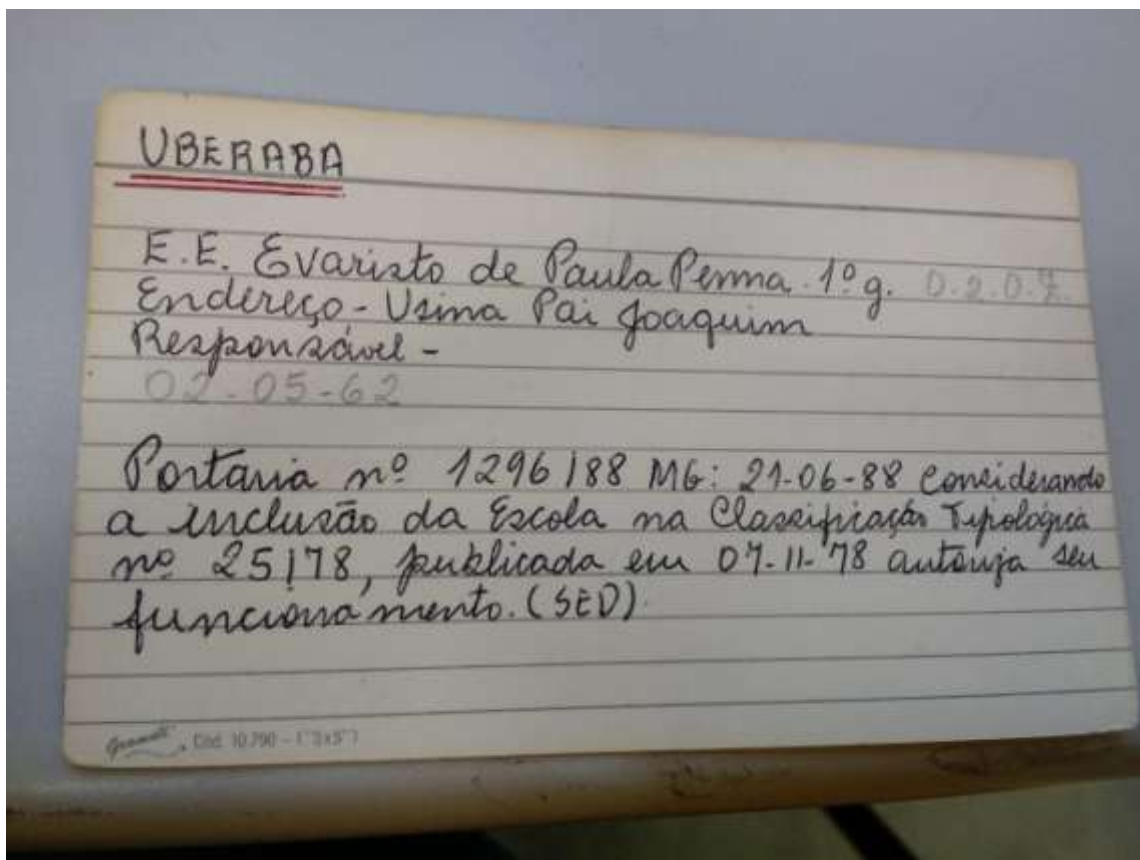 UBERABA
E.E. Evaristo de Paula Penna. 1º g. 0.2.0.7.
Endereço - Usina Pai Joaquim
Responsável -
02-05-62
Portaria nº 1296/88 MG: 21-06-88 Considerando
a inclusão da Escola na Classificação Tipológica
nº 25/78, publicada em 07-11-78 autoriza seu
funcionamento. (SED).
Cód. 10.790 - (3"x5")